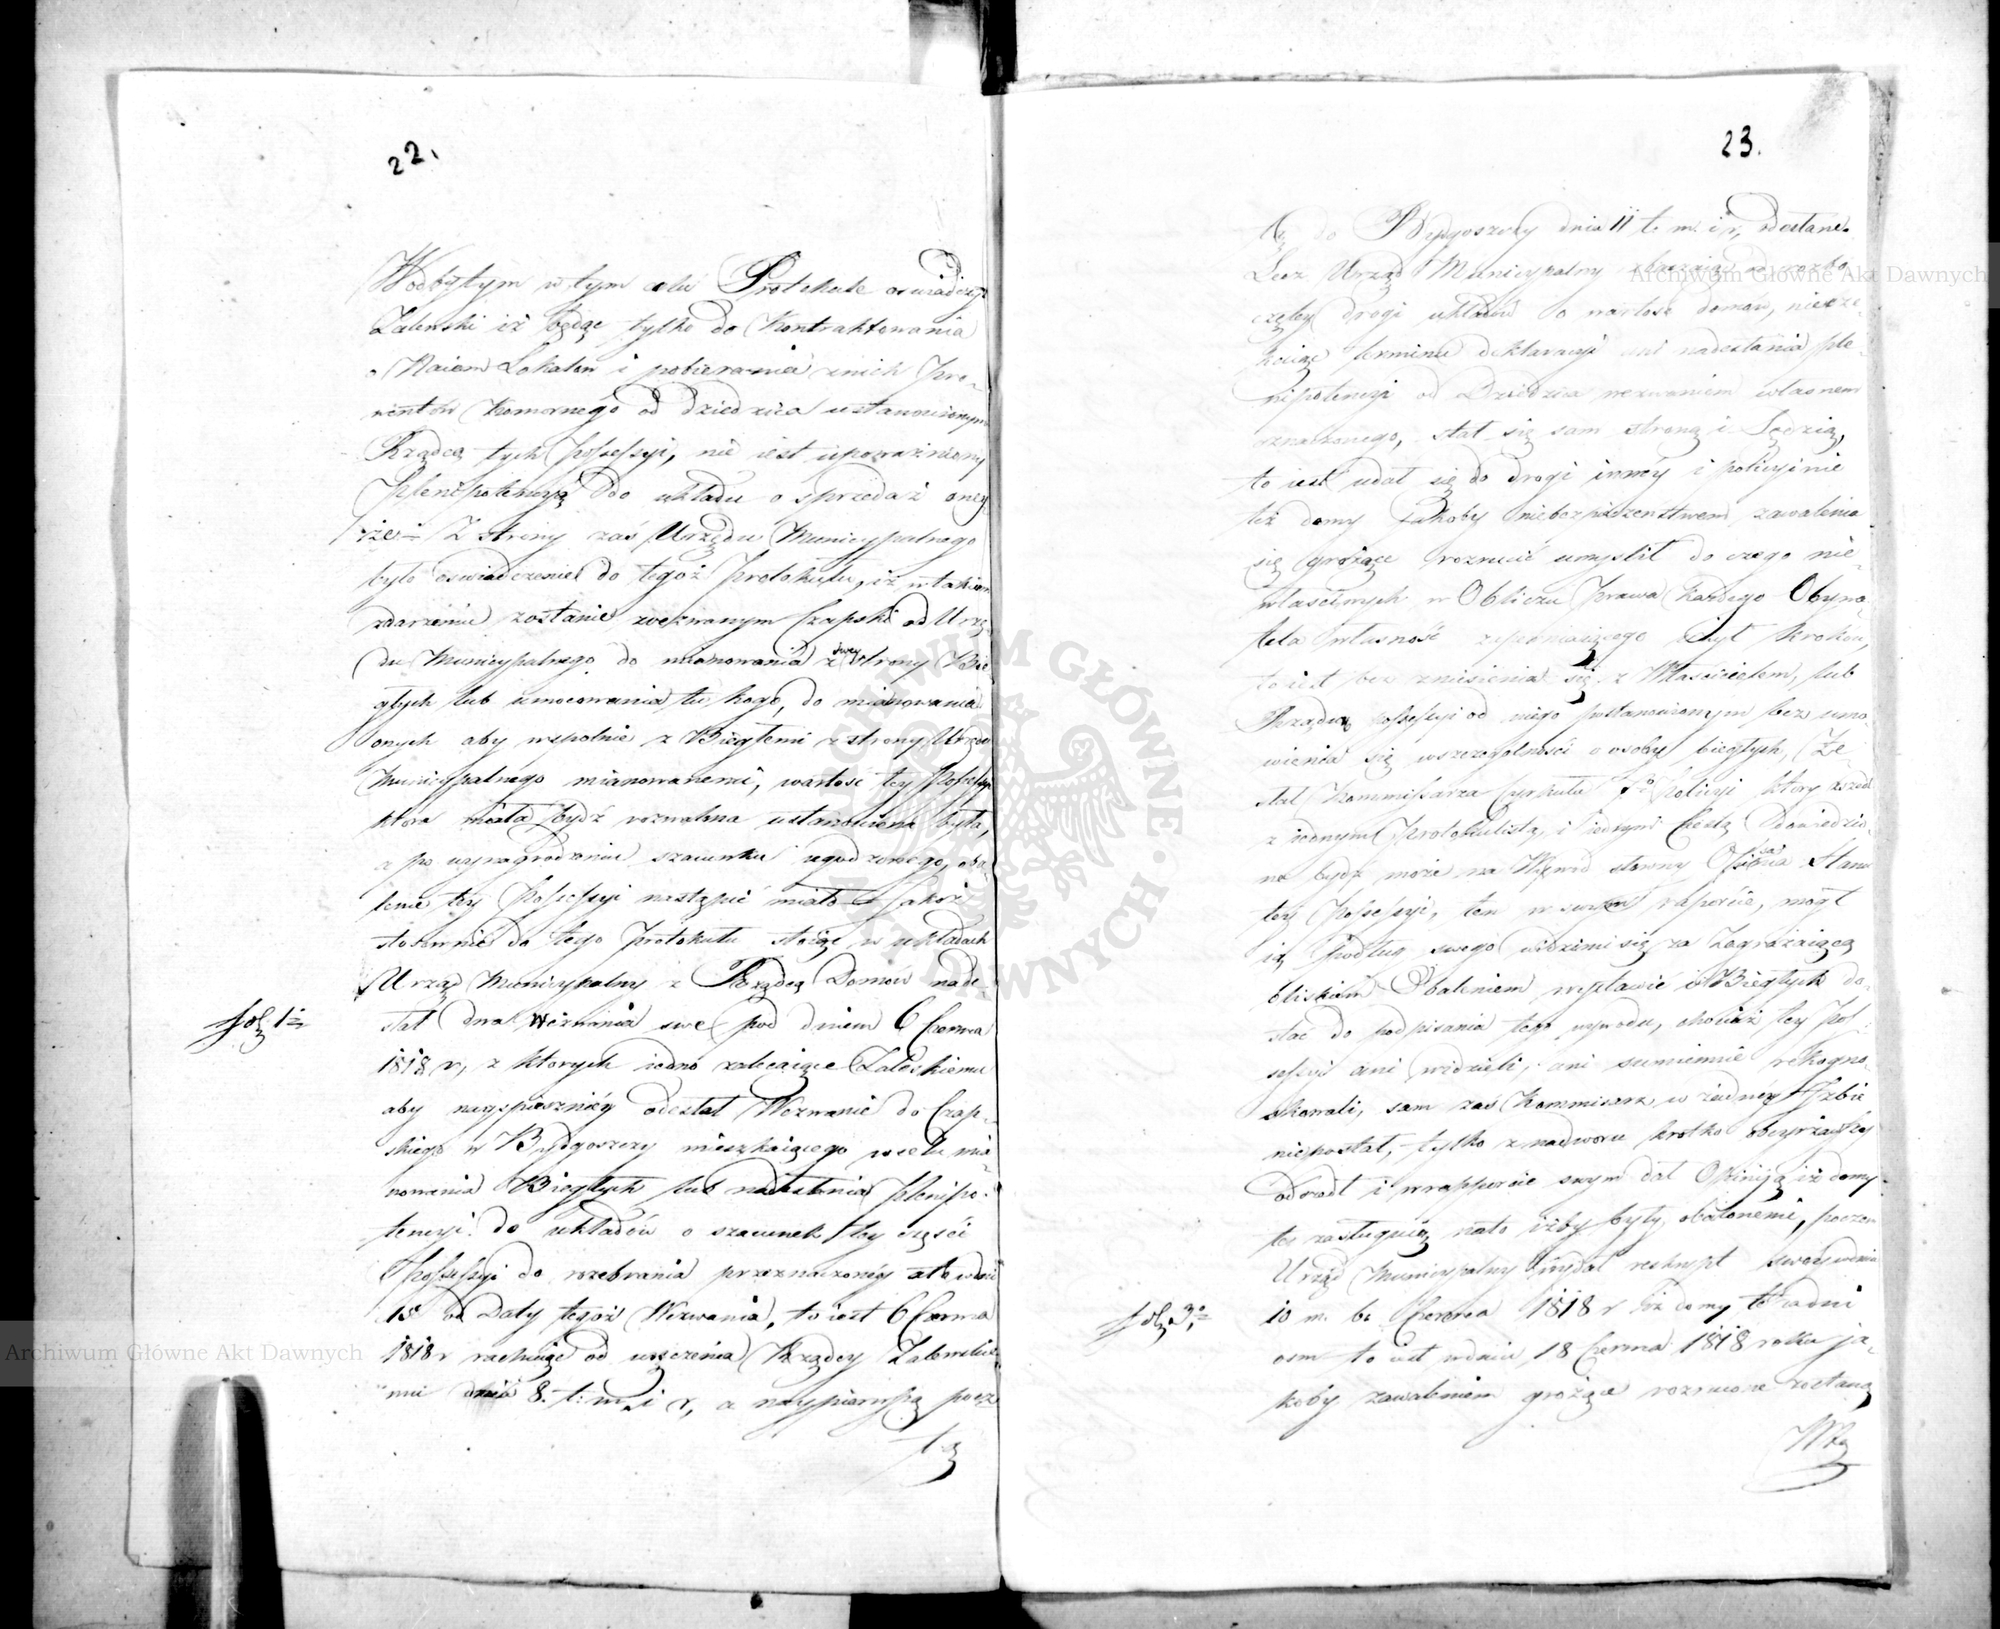 22.
W odbytym w tym celu Protokule oswiadczył
Zalewski iż będąc tylko do Kontraktowania
o Naiem Lokalow i pobierania z nich Pro-
wentów Komornego od dziedzica ustanowionym
Rządcą tych Possessyi, nie iest upoważniony
Plenipotencyą do układu o sprzedaż oney-
że. Z strony zaś Urzędu Municypalnego
było oswiadczenie do tegoż Protokułu, iż w takim
zdarzeniu zostanie wezwanym Czapski od Urzę-
du Municypalnego do mianowania z swey strony Bie-
głych lub umocowania tu kogo, do mianowania
onych aby wspolnie z Biegłemi z strony Urzędu
Municypalnego mianowanemi, wartość tey Possessyi
która miała bydź rozwalona ustanowiona była,
a po wynagrodzeniu szacunku ugodzonego, oba-
lenie tey Possessyi nastąpić miało. Jakoż
stosownie do tego Protokułu stoiąc w układach
Urząd Municypalny z Rządcą Domow nade-
słał dwa Wezwania swe pod dniem 6 Czerwca
1818 r, z ktorych iedno zalecaiące Zaleskiemu
aby nayspieszniey odesłał Wezwanie do Czap-
skiego w Bydgoszczy mieszkaiącego w celu mia-
nowania Biegłych lub nadesłania Plenipo-
tencyi do układów o szacunek tey części
Possessyi do rozebrania przeznaczoney
15 od Daty tegoż Wezwania, to iest 6 Czerwca
1818 r rachuiąc od wręczenia Rządcy Zalewskie-
mu dnia 8. t. m. i r, a naypierwszą pocz-
tą
23.
tą do Bydgoszczy dnia 11 t. m. i r,
Lecz Urząd Municypalny zbaczaiąc z rozpo-
czętey drogi układów o wartość domow, niecze-
kaiąc terminu deklaracyi ani nadesłania ple-
nipotencyi od Dziedzica wezwaniem własnem
oznaczonego, stał się sam stroną i Sędzią,
to iest udał się do drogi inney i policyinie
też domy jakoby niebezpieczenstwem zawalenia
się grożące rozrzucić umyslił do czego nie-
własciwych w Obliczu Prawa każdego Obywa-
tela własność użył krokow,
to iest bez zniesienia się z Własicielem, lub
Rządcą Possessyi od niego postanowionym bez umo-
wienia się w szczegolności o osoby biegłych, Ze-
słał Kommissarza Cyrkułu 7o Policyi który zszedł
z iednym Protokulistą, i iednym Cieslą
no bydz może na Wywod słowny Stanu
tey Possessyi, ten w swym raporcie, mogł
ią podług swego widzimi się za Zagrażaiącą
bliskim Obaleniem wystawić i Biegłych do-
stać do podpisania tego wywodu, chociaż tey Pos-
sessyi ani widzieli, ani sumiennie rekogno-
skowali, sam zaś Kommisarz w żadney Izbie
niepostał, tylko z nadworu krotko obeyrzawszy
odszedł i w rapporcie swym dał Opiniją iż domy
te zasługuią na to iżby były obalonemi, poczem
Urząd Municypalny wydał reskrypt swoy w dniu
10 m. b. Czerwca 1818 r iż domy te za dni
osm to iest w dniu 18 Czerwca 1818 roku ja-
koby zawaleniem grożące rozrzucone zostaną